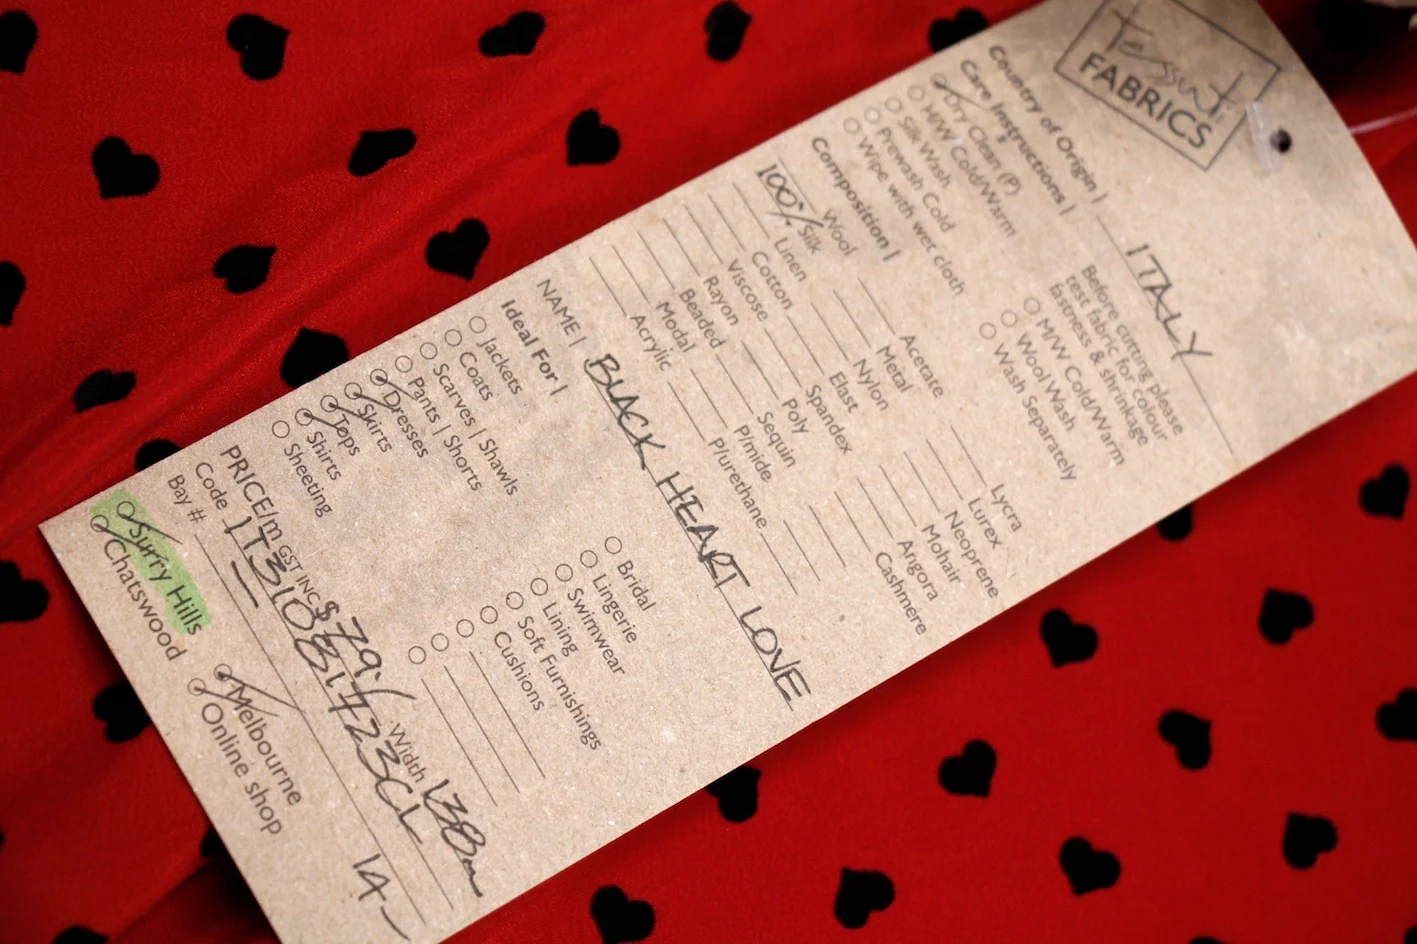 Tessuti
FABRICS
Country of Origin | ITALY
Care Instructions |
Dry Clean (P)
H/W Cold/Warm
Silk Wash
Prewash Cold
Wipe with wet cloth
Before cutting please
test fabric for colour
fastness & shrinkage
M/W Cold/Warm
Wool Wash
Wash Separately
Composition |
Wool
100% Silk
Linen
Cotton
Viscose
Rayon
Beaded
Modal
Acrylic
Acetate
Metal
Nylon
Elast
Spandex
Poly
Sequin
P/mide
P/urethane
Lycra
Lurex
Neoprene
Mohair
Angora
Cashmere
NAME | BLACK HEART LOVE
Ideal For |
Jackets
Coats
Scarves | Shawls
Pants | Shorts
Dresses
Skirts
Tops
Shirts
Sheeting
Bridal
Lingerie
Swimwear
Lining
Soft Furnishings
Cushions
PRICE/m GST INC $79/ Width 138cm
Code
Bay # 14
Surry Hills
Chatswood
Melbourne
Online shop